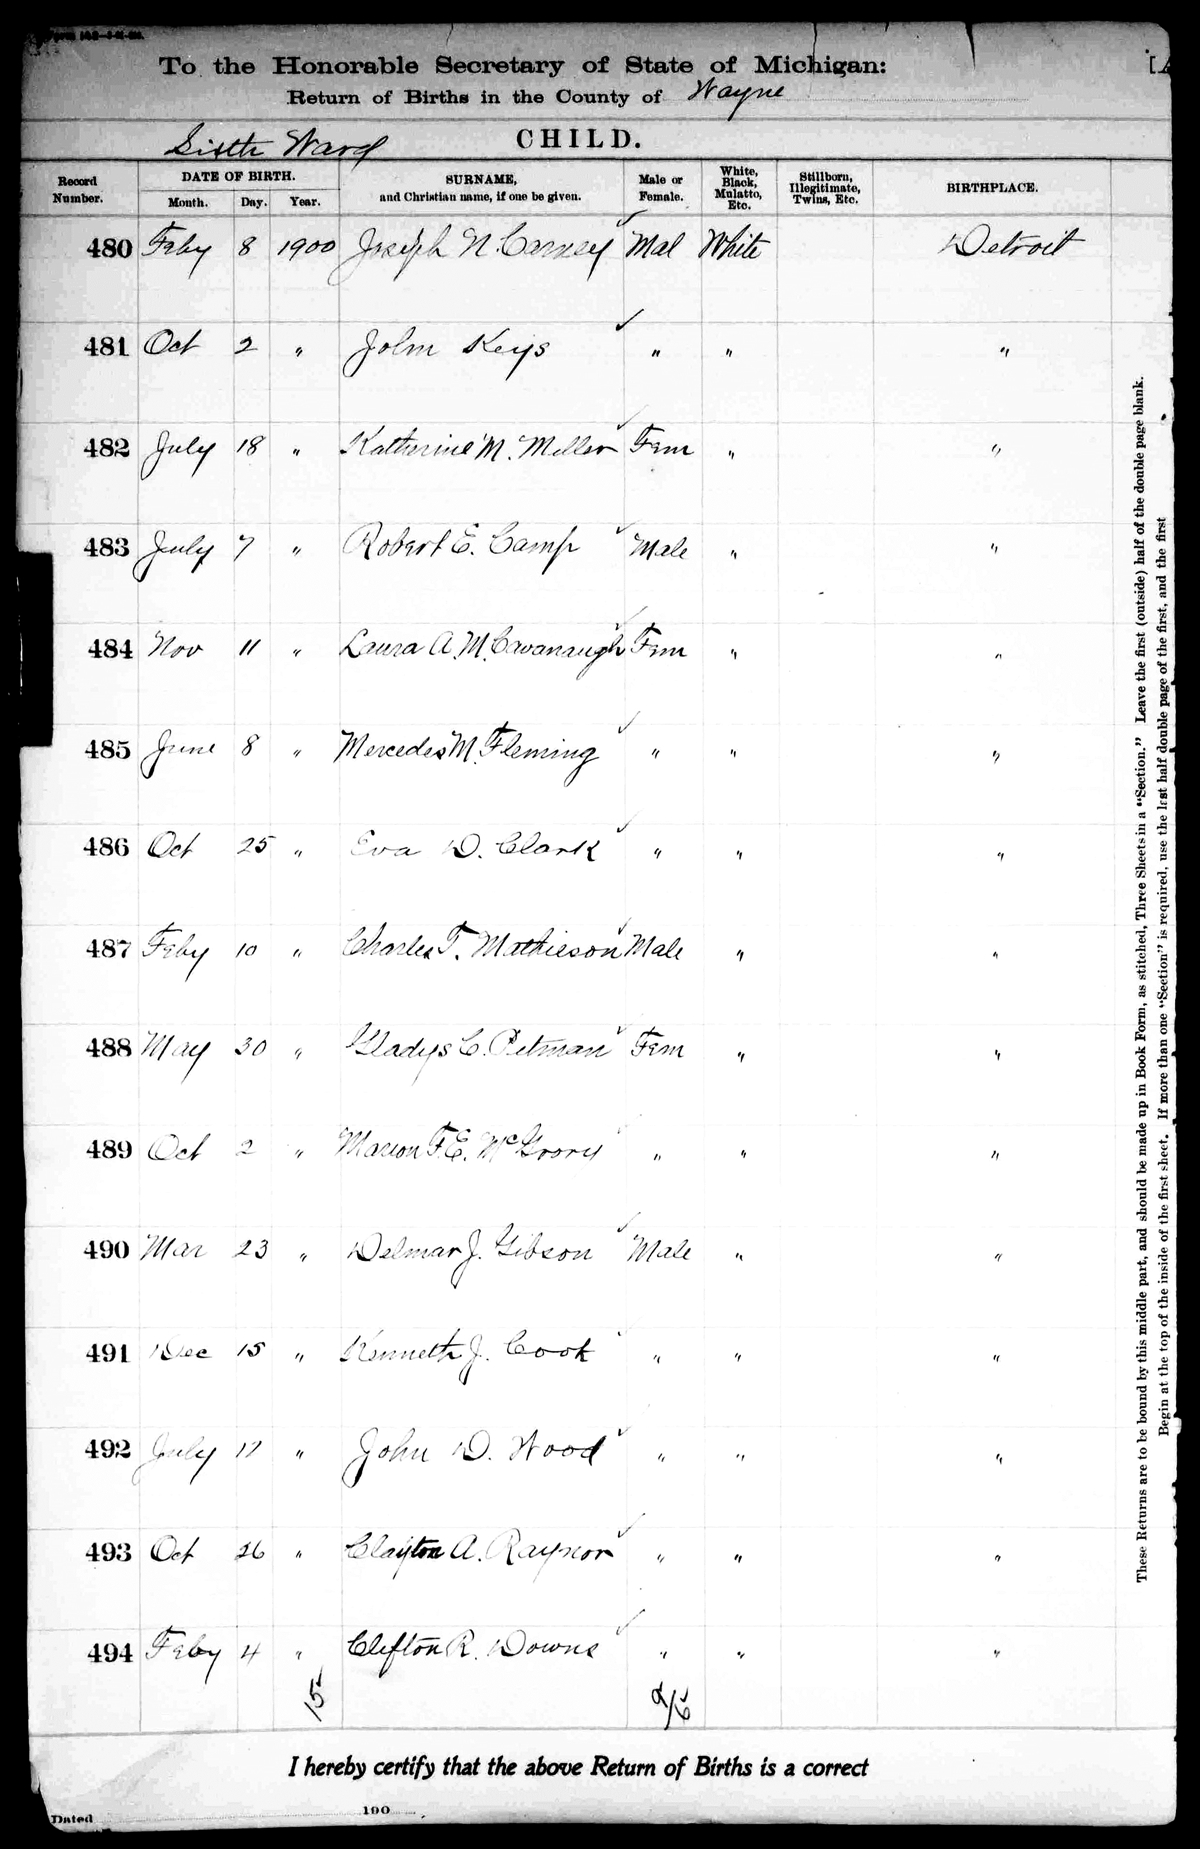 To the Honorable Secretary of State of Michigan:
Return of Births in the County of Wayne
Sixth Ward CHILD.
Record Number. DATE OF BIRTH. Month. Day. Year. SURNAME, and Christian name, if one be given. Male or Female. White, Black, Mulatto, Etc. Stillborn, Illegitimate, Twins, Etc. BIRTHPLACE.
480 Feby 8 1900 Joseph N. Carney Mal White Detroit
481 Oct 2 " John Keys " " "
482 July 18 " Katherine M. Miller Fem " "
483 July 7 " Robert E. Camp Male " "
484 Nov 11 " Laura A. M. Cavanaugh Fem " "
485 June 8 " Mercedes M. Fleming " " "
486 Oct 25 " Eva D. Clark " " "
487 Feby 10 " Charles T. Mathieson Male " "
488 May 30 " Gladys C. Pitman Fem " "
489 Oct 2 " Marion F. E. " " "
490 Mar 23 " Delmar J. Gibson Male " "
491 Dec 15 " Kenneth J. Cook " " "
492 July 17 " John D. Wood " " "
493 Oct 26 " Clayton A. Raynor " " "
494 Feby 4 " Clifton R. Downs " " "
15 9/6
I hereby certify that the above Return of Births is a correct
Dated 190
These Returns are to be bound by this middle part, and should be made up in Book Form, as stitched, Three Sheets in a "Section." Leave the first (outside) half of the double page blank.
Begin at the top of the inside of the first sheet. If more than one "Section" is required, use the last half double page of the first, and the first